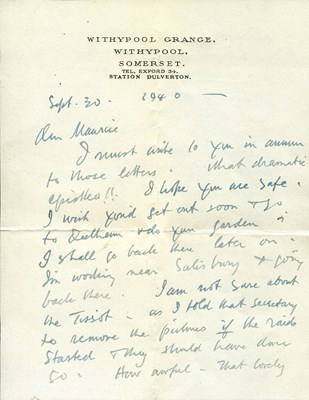 WITHYPOOL GRANGE,
WITHYPOOL,
SOMERSET.
TEL. EXFORD 34.
STATION DULVERTON.
Sept. 20. 1940 —
Dear Maurice
I must write to you in answer
to those letters. What dramatic
epistles!! I hope you are safe.
I wish you'd get out soon & go
to & do your garden
I shall go back there later on.
I'm working near Salisbury & going
back there. I am not sure about
the Tissot – as I told that secretary
to remove the pictures if the raids
started & they should have done
so. How awful – that lovely